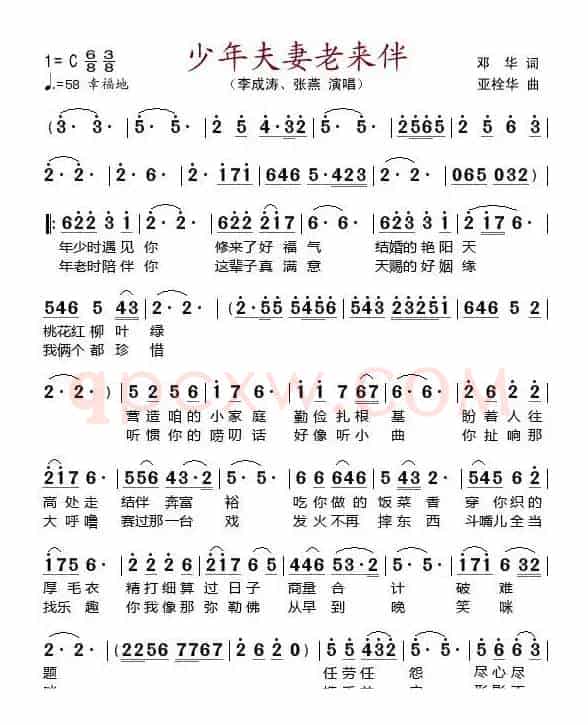 少年夫妻老来伴
1= C 6/8 3/8
♩.=58 幸福地
（李成涛、张燕 演唱）
邓 华 词
亚栓华 曲
(3· 3· | 5· 5· | 2 5 4·32 | 2565 | 2·5 6 5 |
2· 2· | 2· 6· | 2· 171 | 646 5·423 | 2· 2· | 065 032 )
‖: 622 3 1 | 2· 2· | 622 217 | 6· 6· | 622 3 1 | 2 17 6·
年少时遇见你 修来了好福气 结婚的艳阳天
年老时陪伴你 这辈子真满意 天赐的好姻缘
546 5 43 | 2· 2· | (2·55 5456 | 543 43 23251 | 646 5 2
桃花红柳叶绿
我俩个都珍惜
2· 2· ) | 5 2 5 6 | 2·7 6 5 | 1 1 7 67 | 6· 6· | 5 5 6 1
营造咱的小家庭 勤俭扎根基 盼着人往
听惯你的唠叨话 好像听小曲 你扯响那
2 17 6· | 556 43·2 | 5· 5· | 1 1 6 1 | 223 2· | 545 56
高处走 结伴奔富裕 吃你做的饭菜香 穿你织的
大呼噜 赛过那一台戏 发火不再摔东西 斗嘴儿全当
175 6· | 2 2 2 6 | 217 6 5 | 446 53 2 | 5· 5· | 1 6 32
厚毛衣 精打细算过日子 商量合计 破难
找乐趣 你我像那弥勒佛 从早到晚 笑咪
2· 2· | (2256 7767 | 2 6 2 0 ) | 5 5 432 | 5· 5· | 5 5 5
题 任劳任怨 尽心尽
qpcxw.com